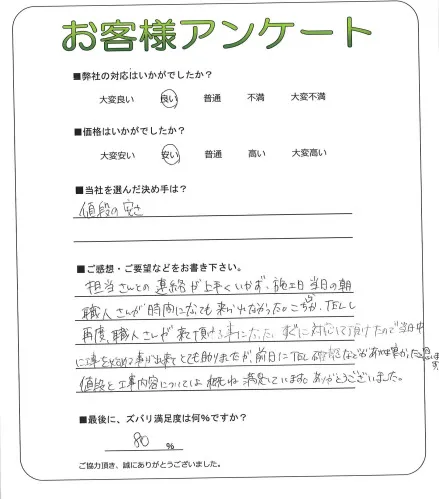 お客様アンケート
■弊社の対応はいかがでしたか？
大変良い 良い 普通 不満 大変不満
■価格はいかがでしたか？
大変安い 安い 普通 高い 大変高い
■当社を選んだ決め手は？
値段の安さ
■ご感想・ご要望などをお書き下さい。
担当さんとの連絡が上手くいかず、施工日当日の朝
職人さんが時間になっても来られなかった。こちらからTELし
再度、職人さんが来て頂ける事になった。すぐに対応して頂けたので当日中
に工事を始める事が出来とても助りましたが、前日にTEL確認などがあれば良かったと思います
値段と工事内容については概ね満足しています。ありがとうございました。
■最後に、ズバリ満足度は何％ですか？
80 ％
ご協力頂き、誠にありがとうございました。